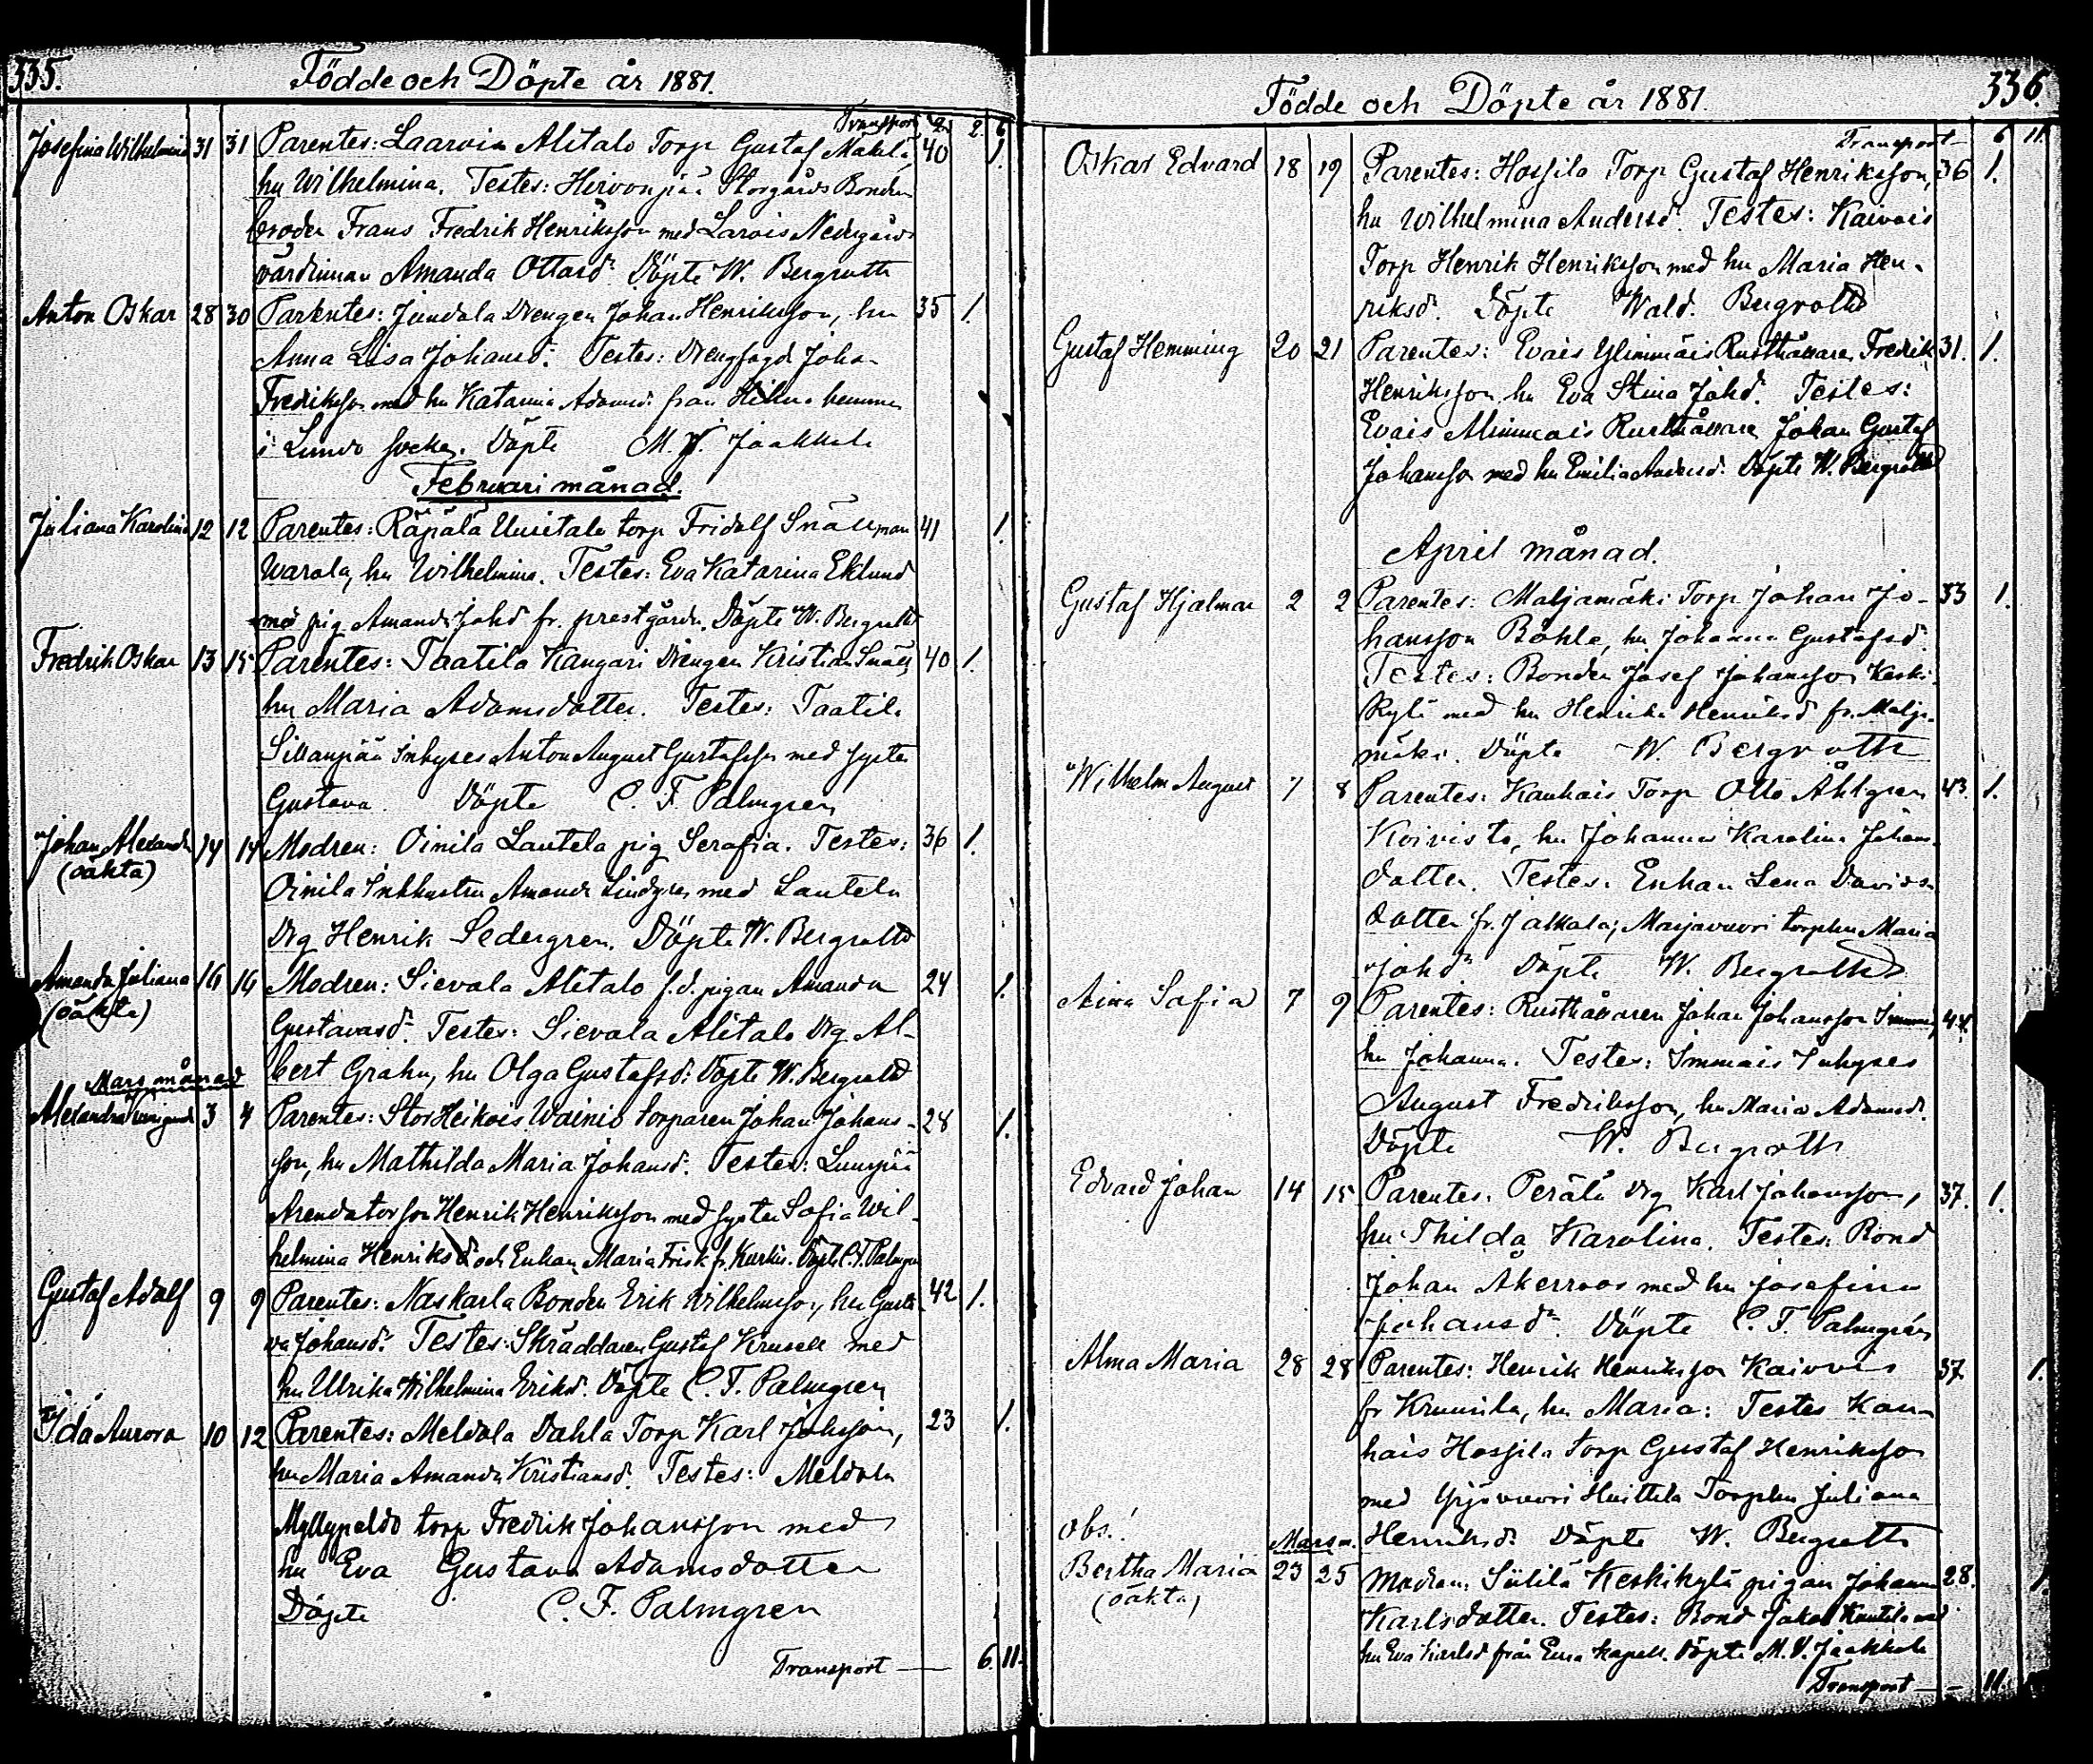 335.
Födde och Döpte år 1881.
Transport 2. 2. 6
Josefina Wilhelmina 31 31 Parentes: Laarois Alitalo Torp Gustaf Mäkilä, 40 1.
hu Wilhelmina. Testes: Hirvonpää Storgårds Bonden
broder Frans Fredrik Henriksson med Larois Nedergårds
värdinnan Amanda Ottasdr. Döpte W. Bergroth
Anton Oskar 28 30 Parentes: Jundola Drengen Johan Henriksson, hu 35 1.
Anna Lisa Johansd. Testes: Drengfogd Johan
Fredriksson med hu Katarina Adamsd. från hemman
i Lundo Socken. Döpte M. V. Jaakkola
Februari månad.
Juliana Karolina 12 12 Parentes: Räpälä Uusitalo torp Fridolf Snällman 41 1.
Warola, hu Wilhelmina. Testes: Eva Katarina Eklund
med pig Amanda Johd fr. prestgården. Döpte W. Bergroth
Fredrik Oskar 13 15 Parentes: Taatila Kangari Drengen Kristian Snäll, 40 1.
hu Maria Adamsdotter. Testes: Taatila
Sillanpää Inhyses Anton August Gustafsson med syster
Gustava Döpte C. F. Palmgren
Johan Alexander 14 14 Modren: Oinila Lautela pig Serafia. Testes: 36 1.
(oäkta)
Oinila Inh hustru Amanda Lindgren med Lautela
Drg Henrik Sedergren. Döpte W. Bergroth
Amanda Juliana 16 16 Modren: Sievola Alitalo f.d. pigan Amanda 24 1.
(oäkta)
Gustavasdr. Testes: Sievala Alitalo Drg Al-
bert Grahn, hu Olga Gustafsd. Döpte W. Bergroth
Mars månad
Alexandra Kunigunda 3 4 Parentes: Stor Heikois Wainio torparen Johan Johans- 28 1.
son, hu Mathilda Maria Johansd. Testes: Luunpää
Arendator son Henrik Henriksson med syster Sofia Wil-
helmina Henriksd och Enkan Maria Frisk fr. Kurkis. Döpte C. F. Palmgren
Gustaf Adolf 9 9 Parentes: Naskarla Bonden Erik Wilhelmsson, hu Gusta- 42 1.
va Johansd. Testes: Skräddaren Gustaf Krusell med
hu Ulrika Wilhelmina Eriksd. Döpte C. F. Palmgren
Ida Aurora 10 12 Parentes: Meldola Dahla Torp Karl Johsson, 23 1.
hu Maria Amanda Kristiansd. Testes: Meldola
Myllypeldo torp Fredrik Johansson med
hu Eva Gustava Adamsdotter
Döpte C. F. Palmgren
Transport — 6. 11.
336.
Födde och Döpte år 1881.
Transport — 6 11.
Oskar Edvard 18 19 Parentes: Hossila Torp Gustaf Henriksson, 36 1.
hu Wilhelmina Andersd. Testes: Kaivois
Torp Henrik Henriksson med hu Maria Hen-
riksd. Döpte Wald. Bergroth
Gustaf Hemming 20 21 Parentes: Evais Ylimmäis Rusthållaren Fredrik 31. 1.
Henriksson hu Eva Stina Johd. Testes:
Evais Alimmais Rusthållare Johan Gustaf
Johansson med hu Emilia Andersd. Döpte W. Bergroth
April månad.
Gustaf Hjalmar 2 2 Parentes: Maljamäki Torp Johan Jo- 33 1.
hansson Böhle, hu Johanna Gustafsd.
Testes: Bonden Josef Johansson Keski-
kylä med hu Henrika Henriksd fr. Malja-
mäki. Döpte W. Bergroth
Wilhelm August 7 8 Parentes: Kauhais Torp Otto Åhlgren 43. 1.
Koivisto, hu Johanna Karolina Johans-
dotter. Testes. Enkan Lena Davids-
dotter fr. Jalkala; Marjavuori torphu Maria
Johdr Döpte W. Bergroth
Aina Sofia 7 9 Parentes: Rusthållaren Johan Johansson Immais, 44.
hu Johanna. Testes: Immais Inhyses
August Fredriksson, hu Maria Adamsd.
Döpte W. Bergroth
Edvard Johan 14 15 Parentes. Perälä Drg Karl Johansson, 37. 1.
hu Thilda Karolina. Testes: Bond
Johan Åkerroos med hu Josefina
Johansdr. Döpte C. F. Palmgren
Alma Maria 28 28 Parentes: Henrik Henriksson Kaivois 37 1.
fr Kruusila, hu Maria: Testes Kau-
hais Hossila torp Gustaf Henriksson
med Yrjövuori Huittila Torphu Juliana
Henriksd. Döpte W. Bergroth
obs.!
Mars m.
Bertha Maria 23 25 Modren: Siitilä Keskikylä pigan Johanna 28. 1.
(oäkta)
Karlsdotter. Testes: Bond Jakob Knutila med
hu Eva Karlsd från Eura Kapell. Döpte M. V. Jaakkola
Transport — 11.